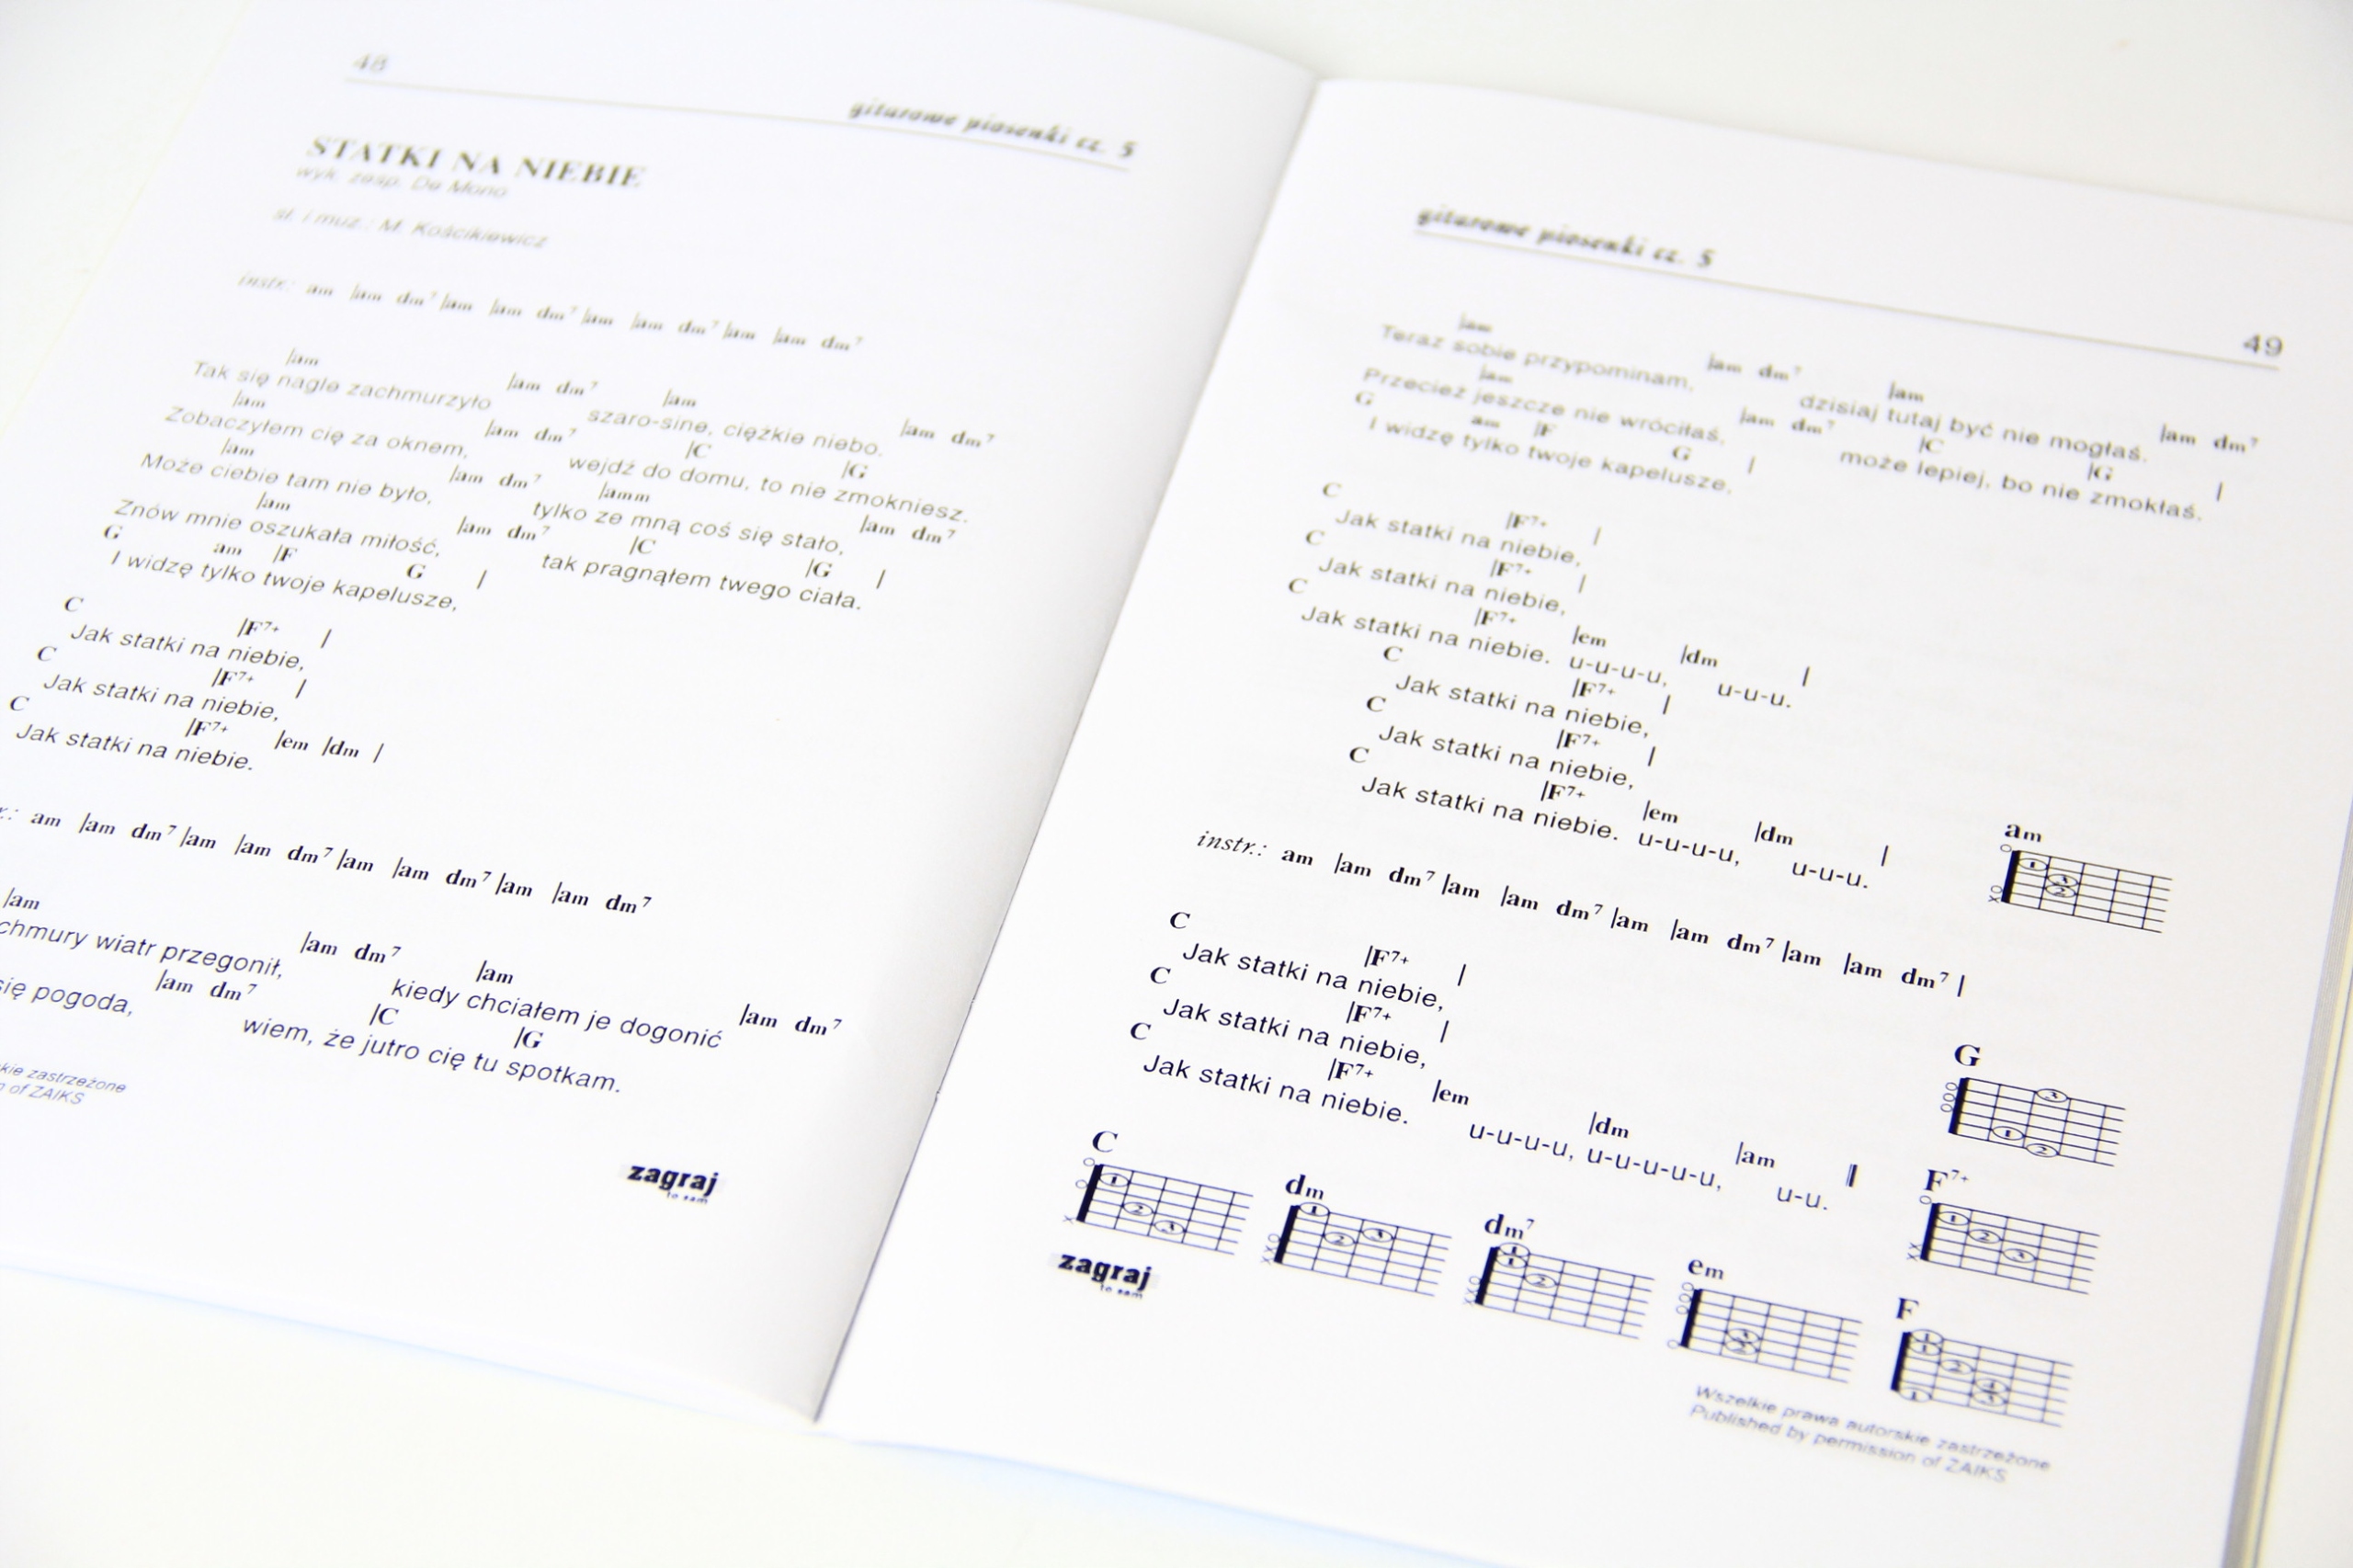 48
gitarowe piosenki cz. 5
STATKI NA NIEBIE
wyk. zesp. De Mono
sł. i muz.: M. Kościkiewicz
instr.: am |am dm7 |am |am dm7 |am |am dm7 |am |am dm7
|am |am dm7 |am |am dm7
Tak się nagle zachmurzyło szaro-sine, ciężkie niebo.
|am |am dm7 |C |G
Zobaczyłem cię za oknem, wejdź do domu, to nie zmokniesz.
|am |am dm7 |amm |am dm7
Może ciebie tam nie było, tylko ze mną coś się stało,
|am |am dm7 |C |G |
Znów mnie oszukała miłość, tak pragnąłem twego ciała.
G am |F G |
I widzę tylko twoje kapelusze,
C |F7+ |
Jak statki na niebie,
C |F7+ |
Jak statki na niebie,
C |F7+ |em |dm |
Jak statki na niebie.
r.: am |am dm7 |am |am dm7 |am |am dm7 |am |am dm7
|am |am dm7 |am |am dm7
chmury wiatr przegonił, kiedy chciałem je dogonić
|am dm7 |C |G
się pogoda, wiem, że jutro cię tu spotkam.
kie zastrzeżone
of ZAIKS
zagraj
to sam
gitarowe piosenki cz. 5
49
|am |am dm7 |am |am dm7
Teraz sobie przypominam, dzisiaj tutaj być nie mogłaś.
|am |am dm7 |C |G |
Przecież jeszcze nie wróciłaś, może lepiej, bo nie zmokłaś.
G am |F G |
I widzę tylko twoje kapelusze,
C |F7+ |
Jak statki na niebie,
C |F7+ |
Jak statki na niebie,
C |F7+ |em |dm |
Jak statki na niebie. u-u-u-u, u-u-u.
C |F7+ |
Jak statki na niebie,
C |F7+ |
Jak statki na niebie,
C |F7+ |em |dm |
Jak statki na niebie. u-u-u-u, u-u-u.
instr.: am |am dm7 |am |am dm7 |am |am dm7 |am |am dm7 |
C |F7+ |
Jak statki na niebie,
C |F7+ |
Jak statki na niebie,
C |F7+ |em |dm |am
Jak statki na niebie. u-u-u-u, u-u-u-u-u, u-u.
am
G
F7+
C
dm
dm7
em
F
zagraj
to sam
Wszelkie prawa autorskie zastrzeżone
Published by permission of ZAIKS